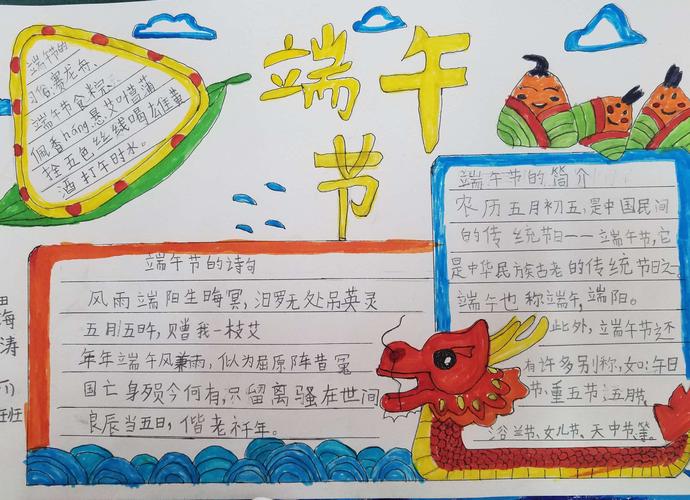 端午节
端午节的
习俗赛龙舟、
端午节食粽、
佩香náng.悬艾叶菖蒲
拴五色丝线喝雄黄
酒打午时水。
端午节的简介
农历五月初五,是中国民间
的传统节日——端午节,它
是中华民族古老的传统节日之一
端午也称端午,端阳。
此外,端午节还
有许多别称,如:午日
节、重五节、五月节、
浴兰节、女儿节、天中节等。
端午节的诗句
风雨端阳生晦冥,汩罗无处吊英灵
五月五日午,赠我一枝艾
年年端午风兼雨,似为屈原陈昔冤
国亡身殒今何有,只留离骚在世间
良辰当五日,偕老祈千年。
海
涛